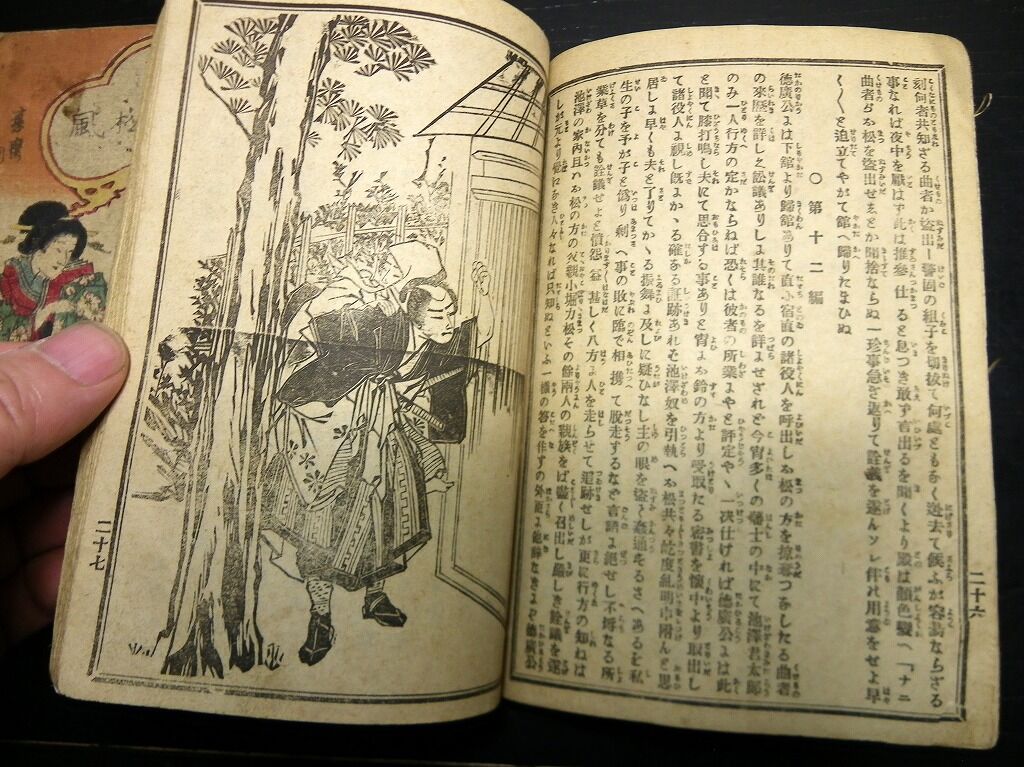 刻何者共知ざる曲者か盗出し警固の組子を切抜て何處ともなく逃去て候ふが容易ならざる
事なれば夜中を厭はず此は推參仕ると息つき敢ず言出るを聞くより殿は顔色變へ「ナニ
曲者がお松を盗出せしとか聞捨ならぬ一珍事急ぎ返りて詮議を遂んソレ伴れ用意をせよ早
く〳〵と迫立てやがて館へ歸りたまひぬ
○第十二編
德廣公は下館より歸館ありて直に宿直の諸役人を呼出しお松の方を掠奪つなしたる曲者
の來歴を詳しと訟議ありしに其誰なるを詳よせざれど今宵多くの藩士の中にて池澤君太郎
のみ一人行方の定かならねば恐くは彼者の所業よやと評定やゝ一决仕ければ德廣公は此
と聞て膝打鳴し夫にて思合する事ありと宵よお鈴の方より受取たる密書を懷中より取出し
て諸役人よ視し既よかゝる確なる証跡あれば池澤奴を引執へお松共々屹度糺明申附んと思
居しよ早くも夫と了りてかゝる振舞よ及しに疑ひなし主の眼を盗く姦通をるさへあるを私
生の子を予が子と僞り剰へ事の敗に臨で相携て脱走するなど言語よ絶せし不埒なる所
業草を分ても詮議せよと憤怨益甚しく八方よ人を走らせて追跡せしが更に行方の知ねば
池澤の家内且お松の方の父親小堀力松その餘兩人の親族をば嚴く召出し嚴しき詮議を遂
しが元より覺にあき人々なれば只知ぬといふ一掃の答を作すの外更よ他辭なきよぞ德廣公
二十六
二十七
風